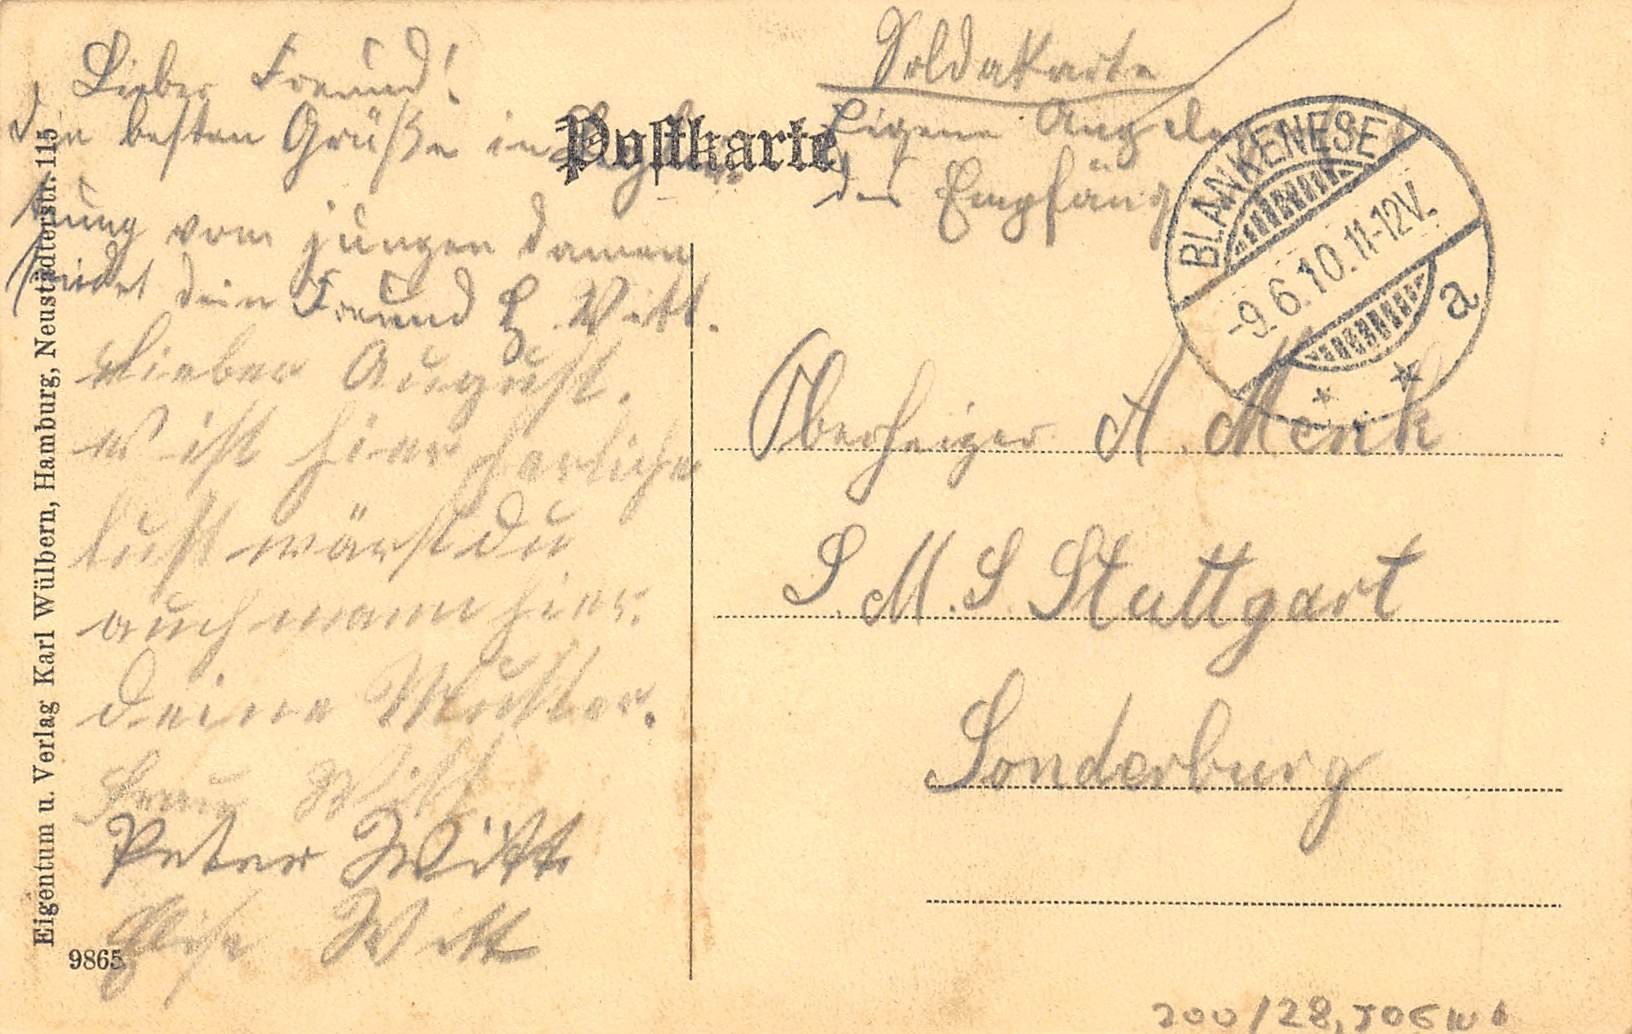 Lieber Freund!
die besten Grüße in
vom jungen Damen
dein Freund H Witt.
Lieber August.
es ist hier herliche
luft wärst du
auch mann hier.
deine Mutter.
Frau Witt
Peter Witt
Elise Witt
Postkarte
Soldatkarte
Eigene Ang de
des Empfäng
BLANKENESE
-9.6.10.11-12V.
a
* *
Oberheizer A. Menk
S. M. S. Stuttgart
Sonderburg
Eigentum u. Verlag Karl Wülbern, Hamburg, Neustädterstr. 115
9865
200/28,